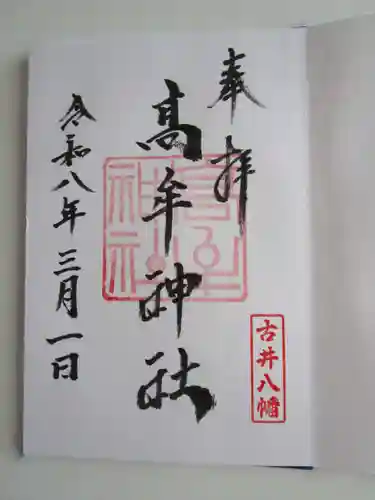 奉拝
古井八幡
髙牟神社
令和八年三月一日